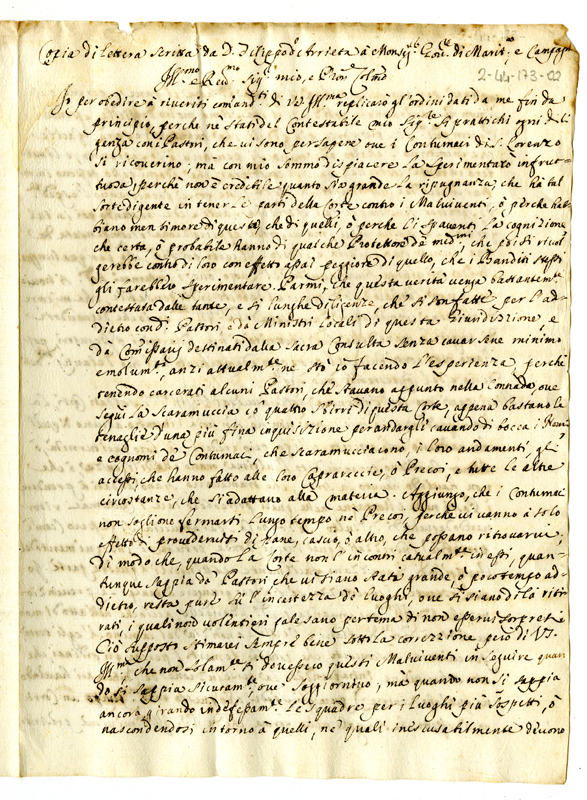 Copia di lettera scritta da D. Filippo de Arrieta à Monsig.re Gov.re di Marit.a e Campag.a
Ill.mo e Rev.mo Sig.r mio, e Pron Colmo
2-44-173-02
Io per obedire à i riveriti comandi di VS Ill.ma replicarò gl'ordini dati da me fin da
principio, perche ne' Stati del Contestabile mio Sig.re si prattichi ogni dili
genza con i Pastri, che vi sono per sapere ove i Contumaci di S. Lorenzo
si ricoverino; mà con mio sommo dispiacere la sperimentarò infrut-
tuosa, perche non è credibile quanto sia grande la ripugnanza, che hà tal
sorte di gente in tenere le parti della Corte contro i Malviventi, ò perche hab-
biano men timore di questa, che di quelli, ò perche li spaventi la cognizione
che certa, ò probabile hanno di qualche Protettore de' med.mi, che poi si rivol
gerebbe contro di loro con effetto assai peggiore di quello, che i Banditi stessi
gli farebbero sperimentare. Parmi, che questa verità venga bastantem.te
contestata dalle tante, e si lunghe diligenze, che si son fatte per l'ad-
dietro con di Pastri, e da Ministri locali di questa Giurisdizione, e
dà Com'issarij destinati dalla Sacra Consulta senza cavarsene minimo
emolum.to, anzi attualm.te ne stò io facendo l'esperienza, perche
tenendo carcerati alcuni Pastri, che stavano appunto nella contrada, ove
seguì la scaramuccia co' quattro sbirri di questa Corte, appena bastano le
tenaglie d'una più fina inquisizione per andargli cavando di bocca i Nomi
e cognomi de' Contumaci, che scaramucciarono, i loro andamenti, gl'
accessi, che hanno fatto alle loro Caprareccie, ò Precoi, e tutte le altre
circostanze, che si adattano alla materia. Aggiungo, che i Contumaci
non soglione fermarsi lungo tempo ne' Precoi, perche vi vanno à solo
effetto di provedersi di pane, cascio, ò altro, che possano ritrovarvi,
di modo che, quando la Corte non l'incontri casualm.te in essi, quan-
tunque sappia da' Pastri che vi siano stati grande, ò poco tempo ad-
dietro, resta pure sù l'incertezza de' luoghi, ove si siano di là riti
rati, i quali non volentieri palesano per tema di non esservi sorpresi. E
Ciò supposto stimarei sempre bene sotto la correzione però di VS
Ill.ma, che non solam.te si dovessero questi Malviventi inseguire quan
do si sappia sicuram.te ove soggiornino, mà quando non si sappia
ancora, girando indefessam.te le squadre per i luoghi più sospetti, ò
nascondendosi intorno à quelli, ne' quali inescusabilmente devono